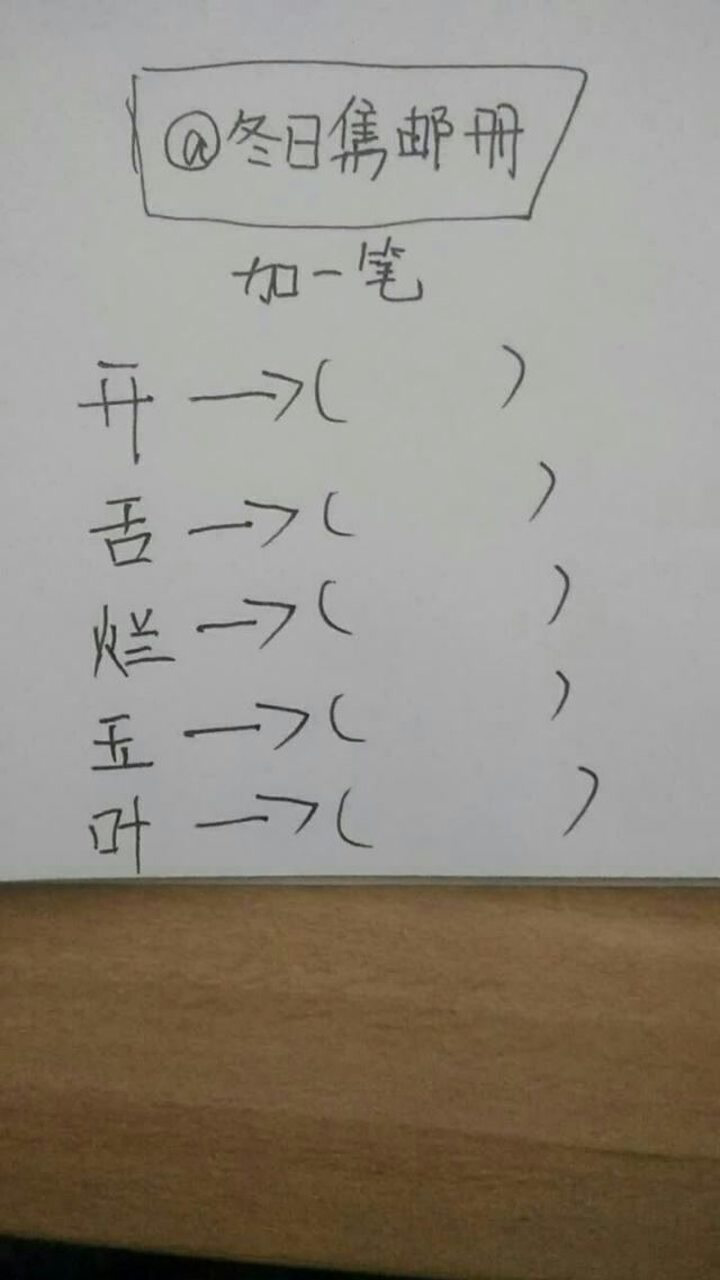 @冬日集邮册
加一笔
开→( )
舌→( )
烂→( )
玉→( )
叶→( )